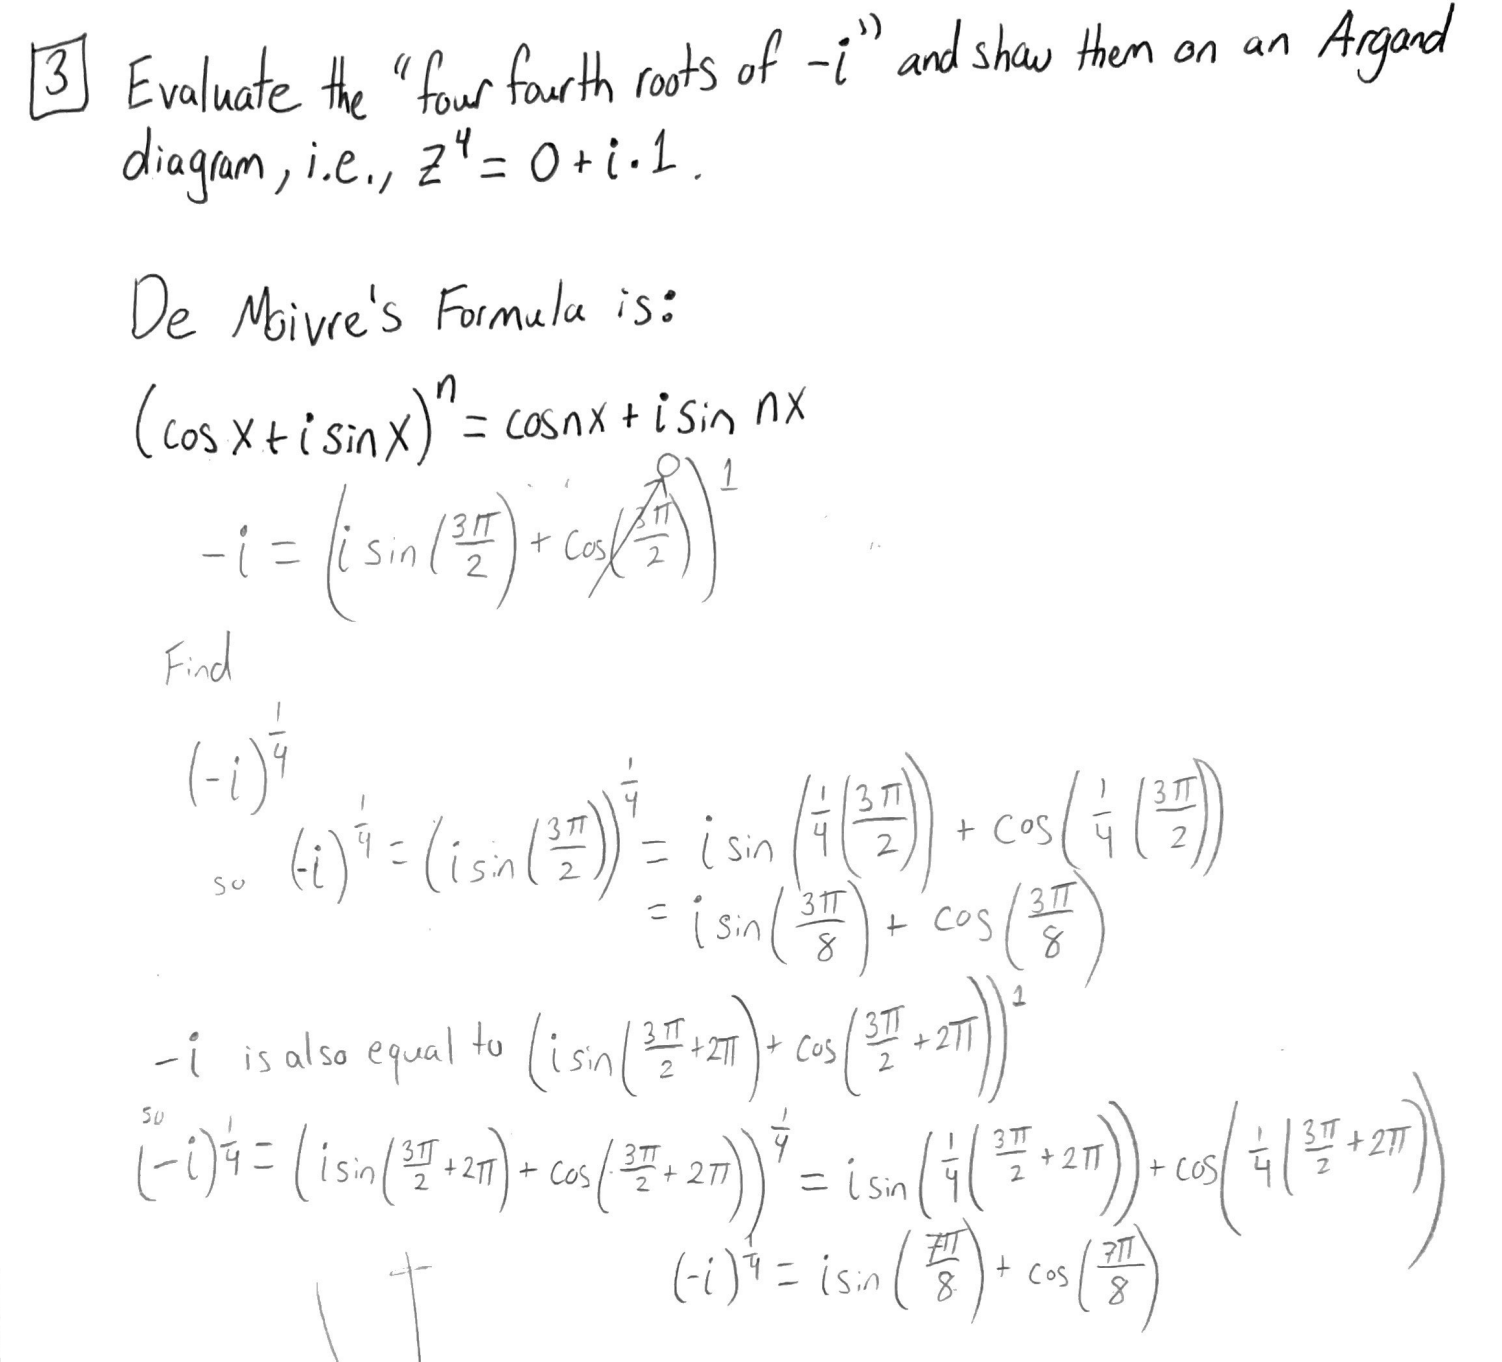 3 Evaluate the "four fourth roots of -i" and show them on an Argand
diagram, i.e., z⁴ = 0 + i·1.
De Moivre's Formula is:
(cos x + i sin x)ⁿ = cos nx + i sin nx
-i = (i sin(3π/2) + cos(3π/2))¹ 0
Find
(-i)^(1/4)
so (-i)^(1/4) = (i sin(3π/2))^(1/4) = i sin(1/4(3π/2)) + cos(1/4(3π/2))
= i sin(3π/8) + cos(3π/8)
-i is also equal to (i sin(3π/2 + 2π) + cos(3π/2 + 2π))¹
so
(-i)^(1/4) = (i sin(3π/2 + 2π) + cos(3π/2 + 2π))^(1/4) = i sin(1/4(3π/2 + 2π)) + cos(1/4(3π/2 + 2π))
(-i)^(1/4) = i sin(7π/8) + cos(7π/8)